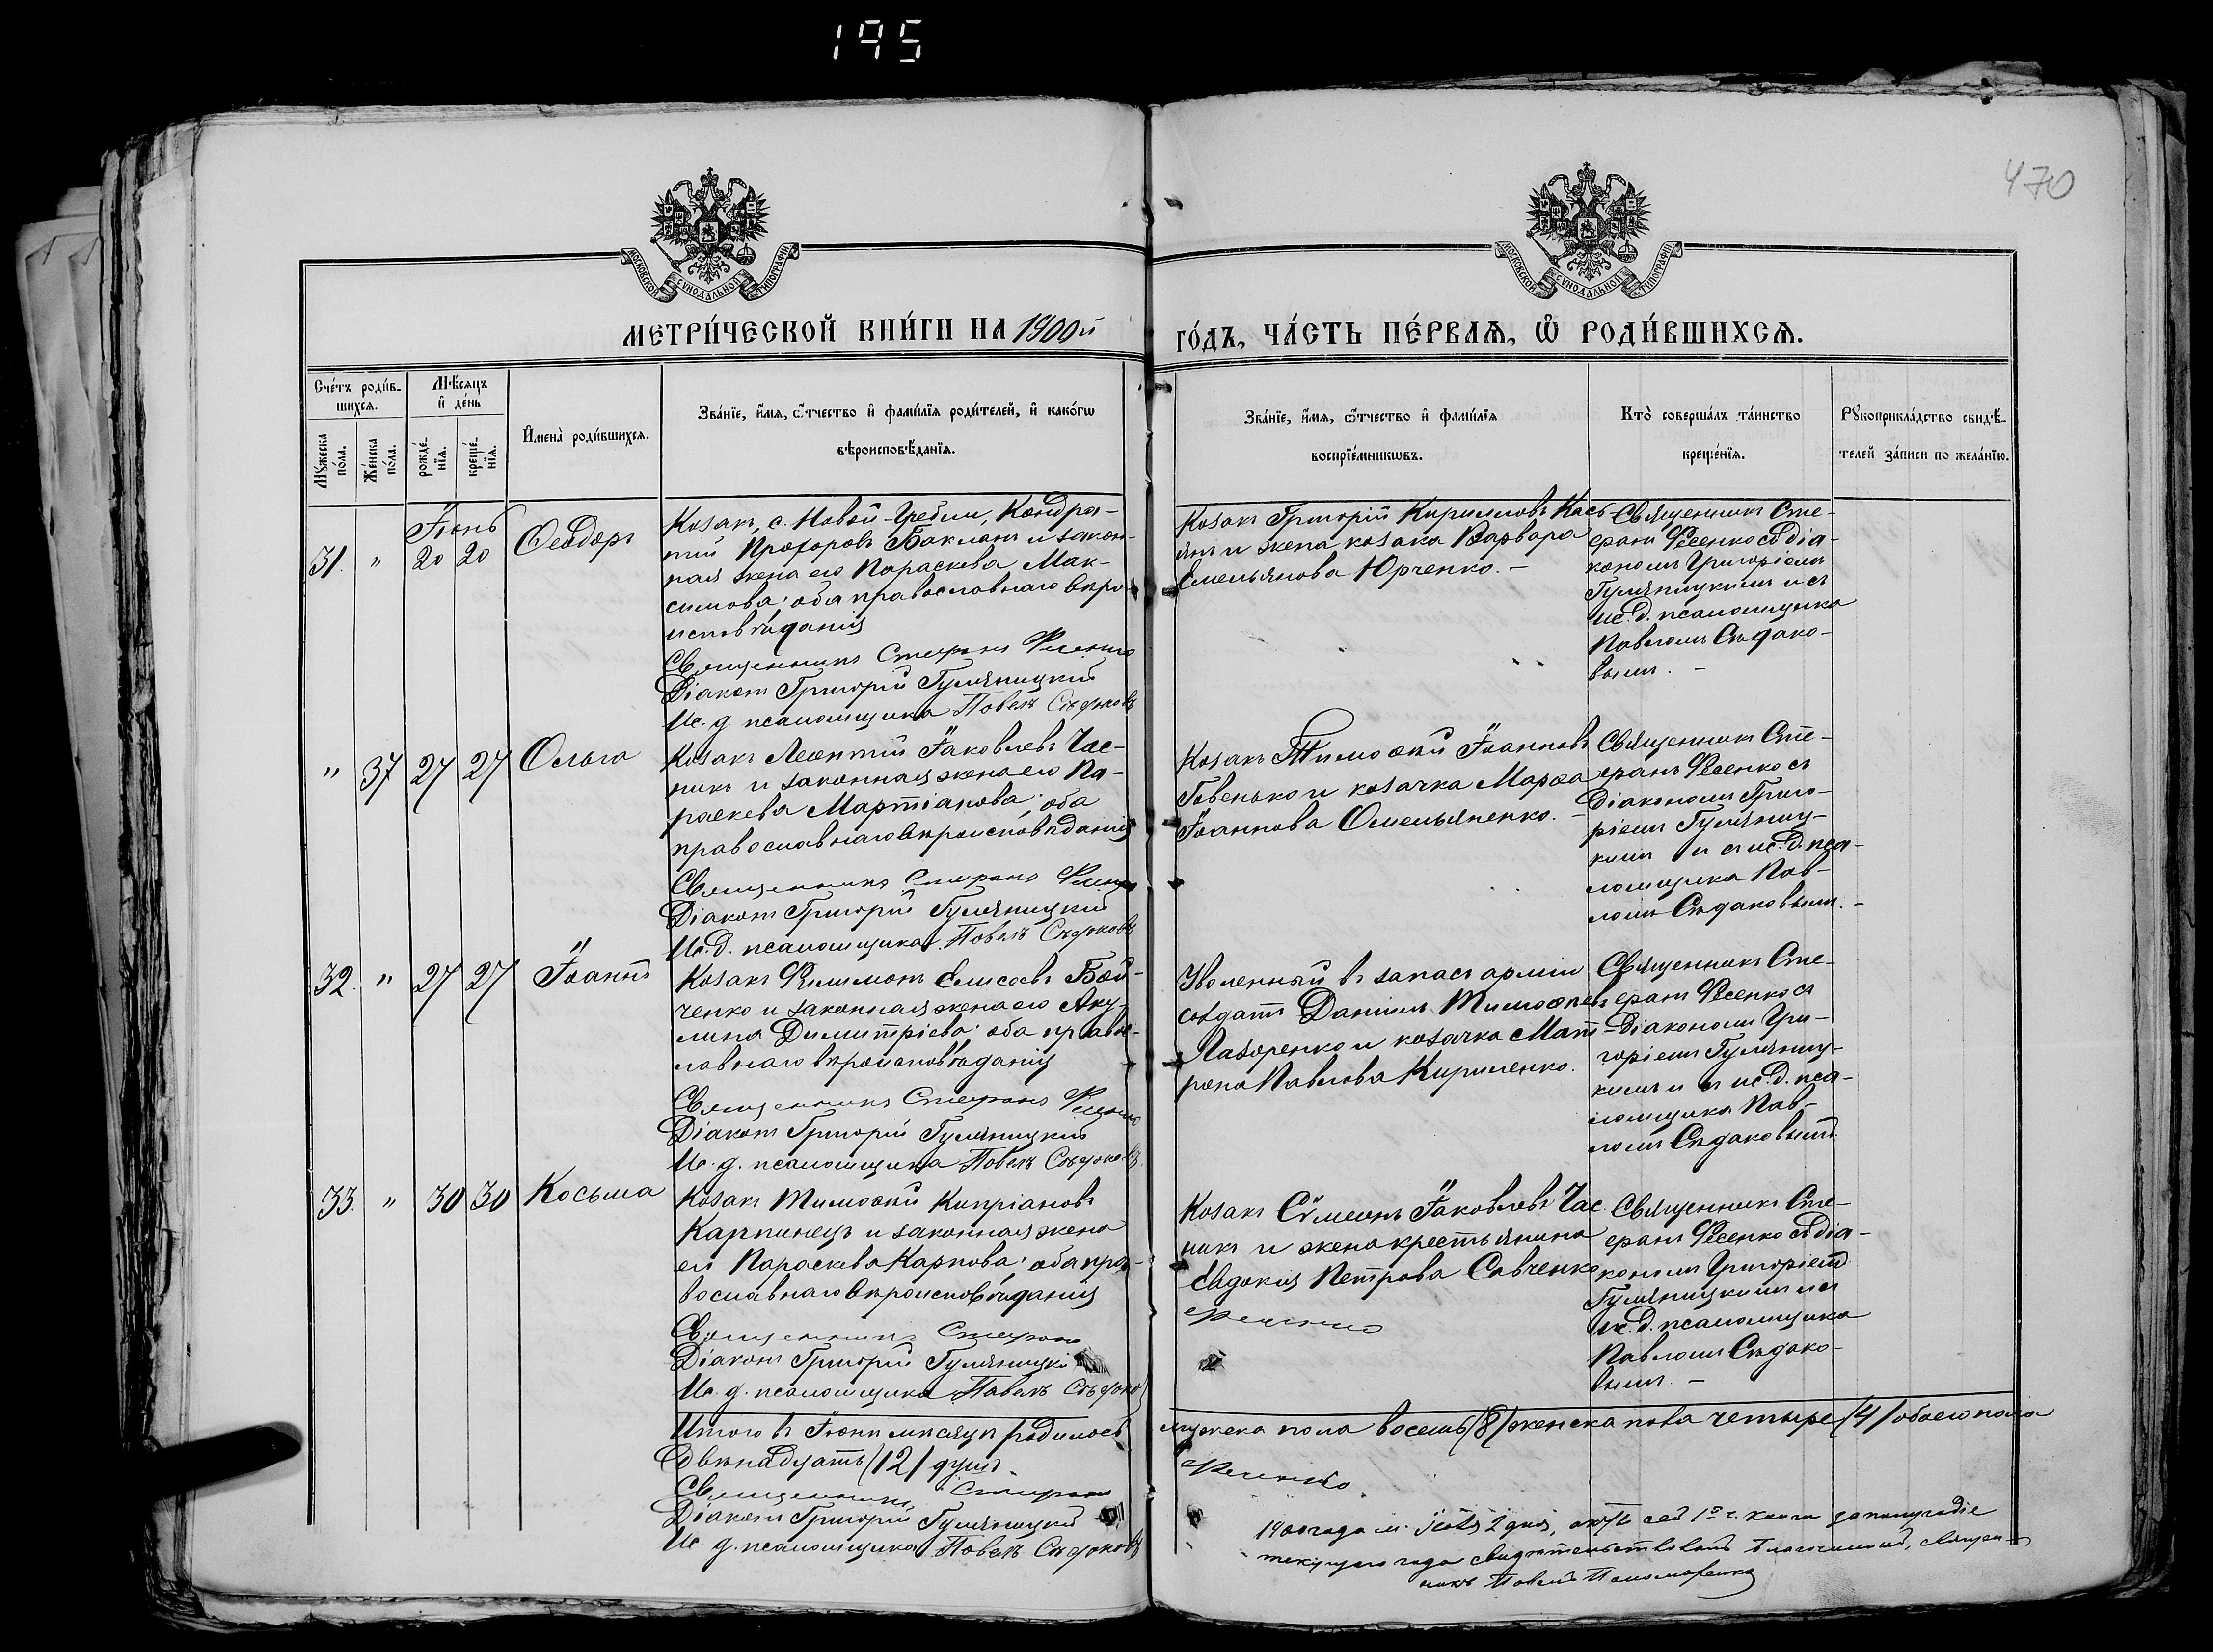 195
470
МОСКОВСКОЙ СѴНОДАЛЬНОЙ ТИПОГРАФІИ
МОСКОВСКОЙ СѴНОДАЛЬНОЙ ТИПОГРАФІИ
МЕТРИ́ЧЕСКОЙ КНИ́ГИ НА 1900й
ГО́ДЪ, ЧА́СТЬ ПЕ́РВАѦ, Ѡ РОДИ́ВШИХСѦ.
Сче́тъ роди́в-
шихсѧ.
Мꙋжеска по́ла.
Же́нска по́ла.
Мѣ́сяцъ
и҆ де́нь
рожде́-
нїѧ.
креще́-
нїѧ.
И҆мена̀ роди́вшихсѧ.
Зва́нїе, и҆́мѧ, ѻ҆́тчество и҆ фами́лїѧ роди́телей, и҆ како́гѡ
вѣроисповѣ́данїѧ.
Зва́нїе, и҆́мѧ, ѻ҆́тчество и҆ фами́лїѧ
воспрїе́мникѡвъ.
Кто̀ соверша́лъ та́инство
креще́нїѧ.
Рꙋкоприкла́дство свидѣ́-
телей за́писи по жела́нїю.
Іюнь
31. " 20 20 Ѳеодоръ
Козакъ с. Новой-Гребли, Кондра-
тій Прохоровъ Бакланъ и закон-
ная жена его Параскева Мак-
симова; оба православнаго вѣро-
исповѣданія
Священникъ Стефанъ Фесенко
Діаконъ Григорій Гуляницкій
Ис. д. псаломщика Павелъ Сѣдаковъ
Козакъ Григорій Кирилловъ Кась-
янъ и жена козака Варвара
Емельянова Юрченко. –
Священникъ Сте-
фанъ Фесенко съ діа-
кономъ Григоріемъ
Гуляницкимъ и съ
ис. д. псаломщика
Павломъ Сѣдако-
вымъ. –
" 37 27 27 Ольга
Козакъ Леонтій Іаковлевъ Час-
никъ и законная жена его Па-
раскева Мартіанова; оба
православнаго вѣроисповѣданія
Священникъ Стефанъ Фесенко
Діаконъ Григорій Гуляницкій
Ис. д. псаломщика Павелъ Сѣдаковъ
Козакъ Тимоѳей Іоанновъ
Говенько и козачка Марѳа
Іоаннова Омельяненко. –
Священникъ Сте-
фанъ Фесенко съ
діакономъ Григо-
ріемъ Гуляниц-
кимъ и съ ис. д. пса-
ломщика Пав-
ломъ Сѣдаковымъ. –
32. " 27 27 Іоаннъ
Козакъ Филимонъ Елисеевъ Бой-
ченко и законная жена его Аку-
лина Димитріева; оба правос-
лавнаго вѣроисповѣданія
Священникъ Стефанъ Фесенко
Діаконъ Григорій Гуляницкій
Ис. д. псаломщика Павелъ Сѣдаковъ
Уволенный въ запасъ арміи
солдатъ Даніилъ Тимоѳеевъ
Лазоренко и козачка Мат-
рона Павлова Кириленко.
Священникъ Сте-
фанъ Фесенко съ
діакономъ Гри-
горіемъ Гуляниц-
кимъ и съ ис. д. пса-
ломщика Пав-
ломъ Сѣдаковымъ.
33. " 30 30 Косьма
Козакъ Тимоѳей Кипріановъ
Карпинецъ и законная жена
его Параскева Карпова; оба пра-
вославнаго вѣроисповѣданія
Священникъ Стефанъ
Діаконъ Григорій Гуляницкій
Ис. д. псаломщика Павелъ Сѣдаковъ
Козакъ Сѵмеонъ Іаковлевъ Час-
никъ и жена крестьянина
Евдокія Петрова Савченко
Фесенко
Священникъ Сте-
фанъ Фесенко съ діа-
кономъ Григоріемъ
Гуляницкимъ и съ
ис. д. псаломщика
Павломъ Сѣдако-
вымъ. –
Итого въ Іюнѣ мѣсяцѣ родилось
двѣнадцать /12/ душъ.
Священникъ Стефанъ
Діаконъ Григорій Гуляницкій
Ис. д. псаломщика Павелъ Сѣдаковъ
мужеска пола восемь /8/ женска пола четыре /4/ обоего пола
Фесенко
1900 года м. Іюля 2 дня, акты сей 1ой ч. книги за полугодіе
текущаго года свидѣтельствовалъ Благочинный, священ-
никъ Павелъ Пономаренко